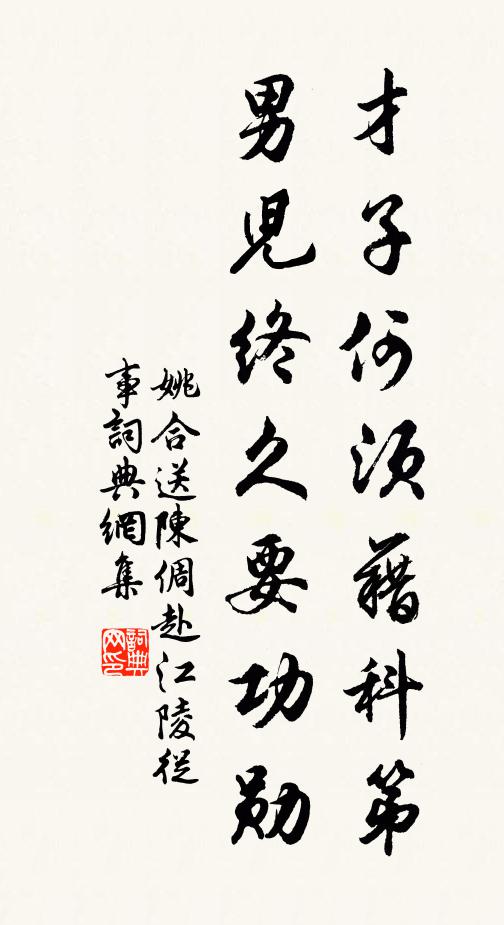 才子何須藉科第
男兒終久要功勛
姚合送陳倜赴江陵從
事詞典網集
詞典
网印